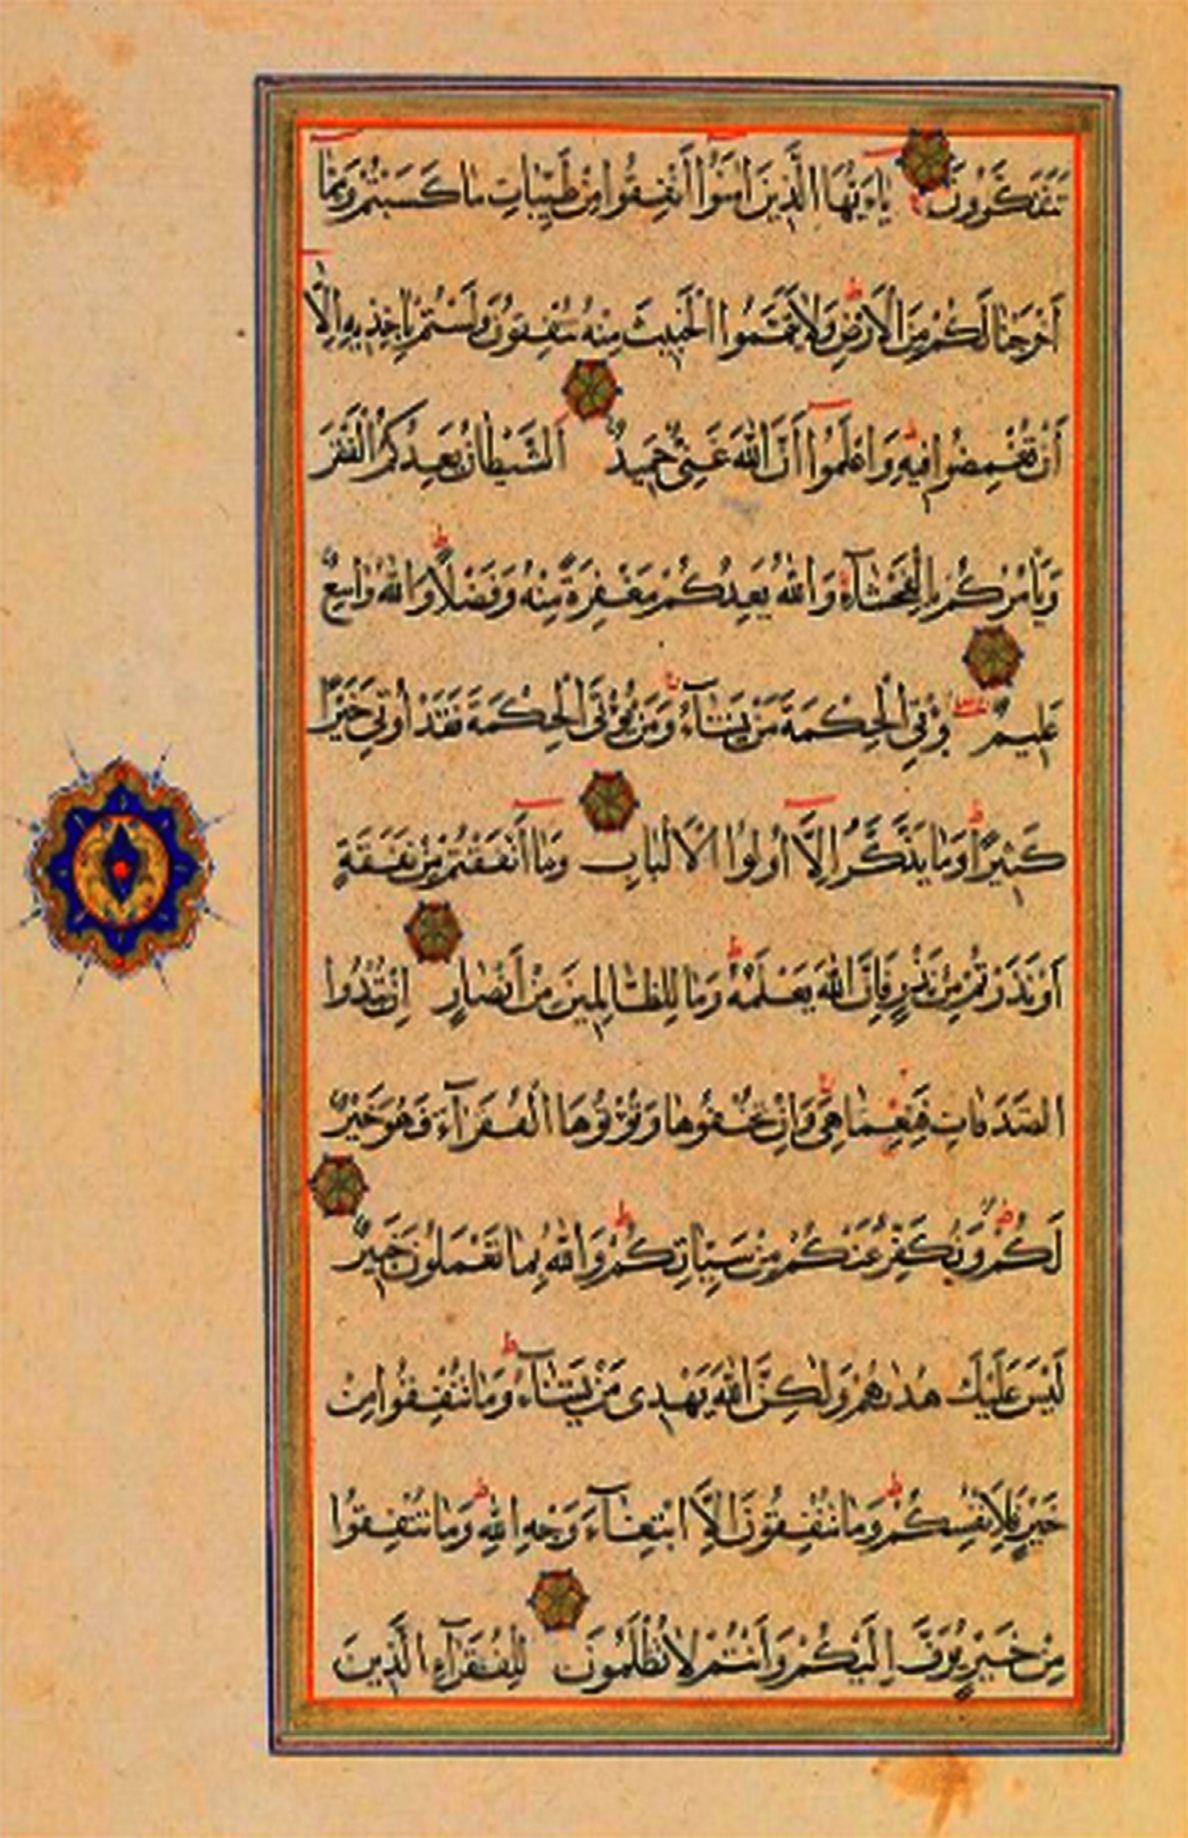 تَتَفَكَّرُونَ يَاءَيُّهَا الَّذِينَ اٰمَنُوا أَنْفِقُوا مِنْ طَيِّبَاتِ مَا كَسَبْتُمْ وَمِمَّا
أَخْرَجْنَا لَكُمْ مِنَ الْأَرْضِ وَلَا تَيَمَّمُوا الْخَبِيثَ مِنْهُ تُنْفِقُونَ وَلَسْتُمْ بِاٰخِذِيهِ إِلَّا
أَنْ تُغْمِضُوا فِيهِ وَاعْلَمُوا أَنَّ اللّٰهَ غَنِىٌّ حَمِيدٌ اَلشَّيْطَانُ يَعِدُكُمُ الْفَقْرَ
وَيَأْمُرُكُمْ بِالْفَحْشَآءِ وَاللّٰهُ يَعِدُكُمْ مَغْفِرَةً مِنْهُ وَفَضْلًا وَاللّٰهُ وَاسِعٌ
عَلِيمٌ يُؤْتِى الْحِكْمَةَ مَنْ يَشَآءُ وَمَنْ يُؤْتَ الْحِكْمَةَ فَقَدْ أُوتِىَ خَيْرًا
كَثِيرًا وَمَا يَذَّكَّرُ إِلَّا أُولُوا الْأَلْبَابِ وَمَا أَنْفَقْتُمْ مِنْ نَفَقَةٍ
أَوْ نَذَرْتُمْ مِنْ نَذْرٍ فَإِنَّ اللّٰهَ يَعْلَمُهُ وَمَا لِلظَّالِمِينَ مِنْ أَنْصَارٍ إِنْ تُبْدُوا
الصَّدَقَاتِ فَنِعِمَّا هِىَ وَإِنْ تُخْفُوهَا وَتُؤْتُوهَا الْفُقَرَآءَ فَهُوَ خَيْرٌ
لَكُمْ وَيُكَفِّرُ عَنْكُمْ مِنْ سَيِّاٰتِكُمْ وَاللّٰهُ بِمَا تَعْمَلُونَ خَبِيرٌ
لَيْسَ عَلَيْكَ هُدٰىهُمْ وَلٰكِنَّ اللّٰهَ يَهْدِى مَنْ يَشَآءُ وَمَا تُنْفِقُوا مِنْ
خَيْرٍ فَلِأَنْفُسِكُمْ وَمَا تُنْفِقُونَ إِلَّا ابْتِغَآءَ وَجْهِ اللّٰهِ وَمَا تُنْفِقُوا
مِنْ خَيْرٍ يُوَفَّ إِلَيْكُمْ وَأَنْتُمْ لَا تُظْلَمُونَ لِلْفُقَرَآءِ الَّذِينَ